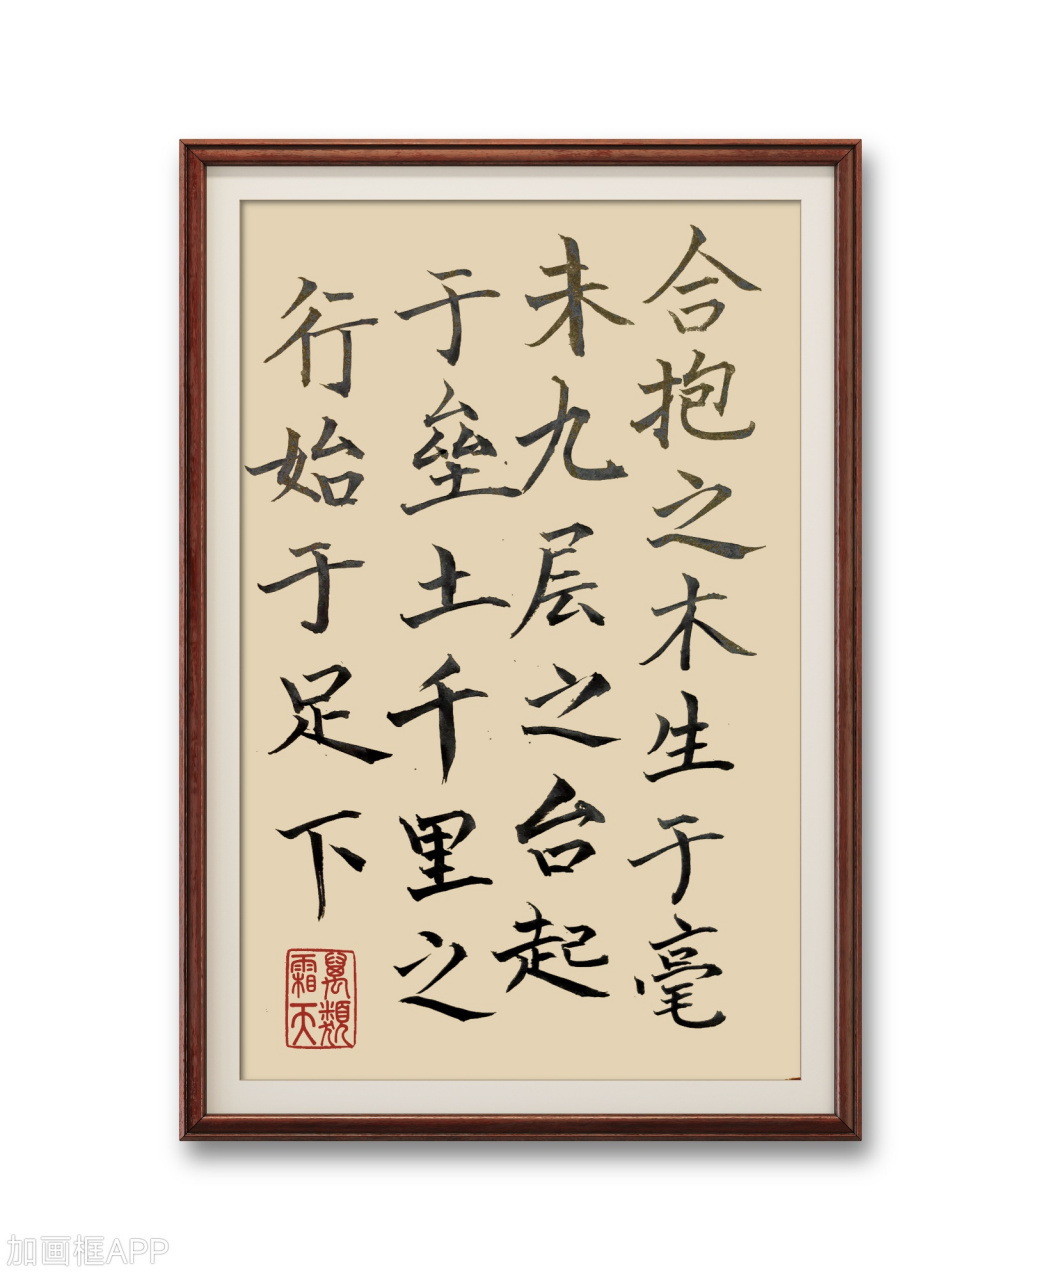 合抱之木生于毫
未九层之台起
于垒土千里之
行始于足下
萬類
霜天
加画框APP